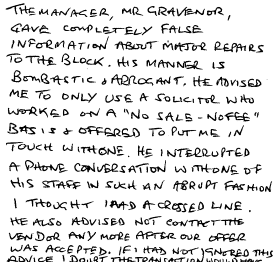 THE MANAGER, MR GRAVENOR,
GAVE COMPLETELY FALSE
INFORMATION ABOUT MAJOR REPAIRS
TO THE BLOCK. HIS MANNER IS
BOMBASTIC & ARROGANT. HE ADVISED
ME TO ONLY USE A SOLICITOR WHO
WORKED ON A "NO SALE - NO FEE"
BASIS & OFFERED TO PUT ME IN
TOUCH WITH ONE. HE INTERRUPTED
A PHONE CONVERSATION WITH ONE OF
HIS STAFF IN SUCH AN ABRUPT FASHION
I THOUGHT I HAD A CROSSED LINE.
HE ALSO ADVISED NOT CONTACT THE
VENDOR ANY MORE AFTER OUR OFFER
WAS ACCEPTED. IF I HAD NOT IGNORED THIS
ADVICE I DOUBT THE TRANSACTION WOULD HAVE